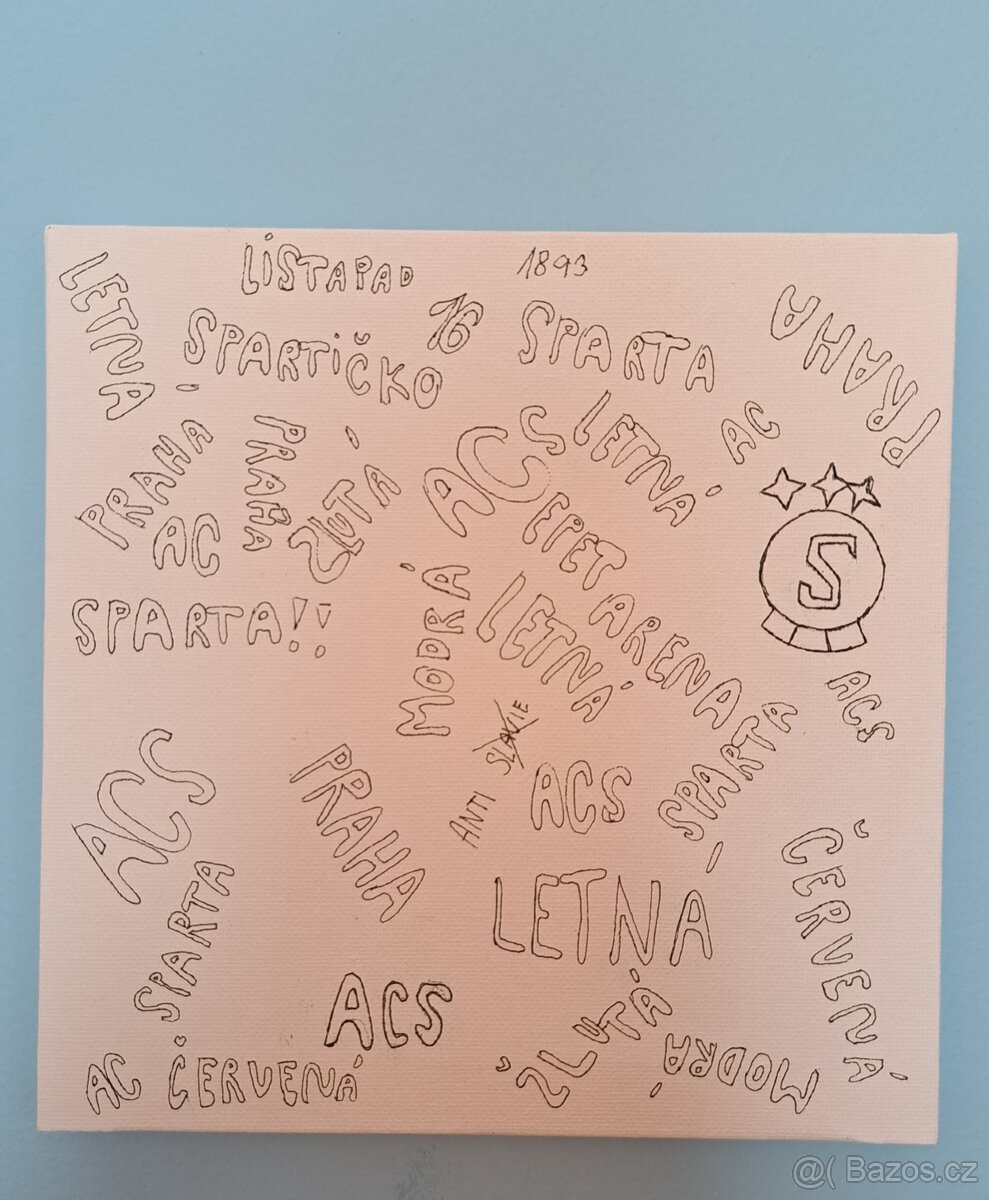 LiSTAPAD
1893
LETNÁ
16
SPARTiČKO
SPARTA
PRAHA
AC
LETNÁ
PRAHA
PRAHA
ŽLUTÁ
ACS
AC
EPET ARENA
S
SPARTA!!
MODRÁ
LETNÁ
ACS
ANTI SLAVIE
SPARTA
ACS
PRAHA
ACS
LETNÁ
ČERVENÁ
SPARTA
ACS
ŽLUTÁ
MODRÁ
AC ČERVENÁ
@( Bazos.cz